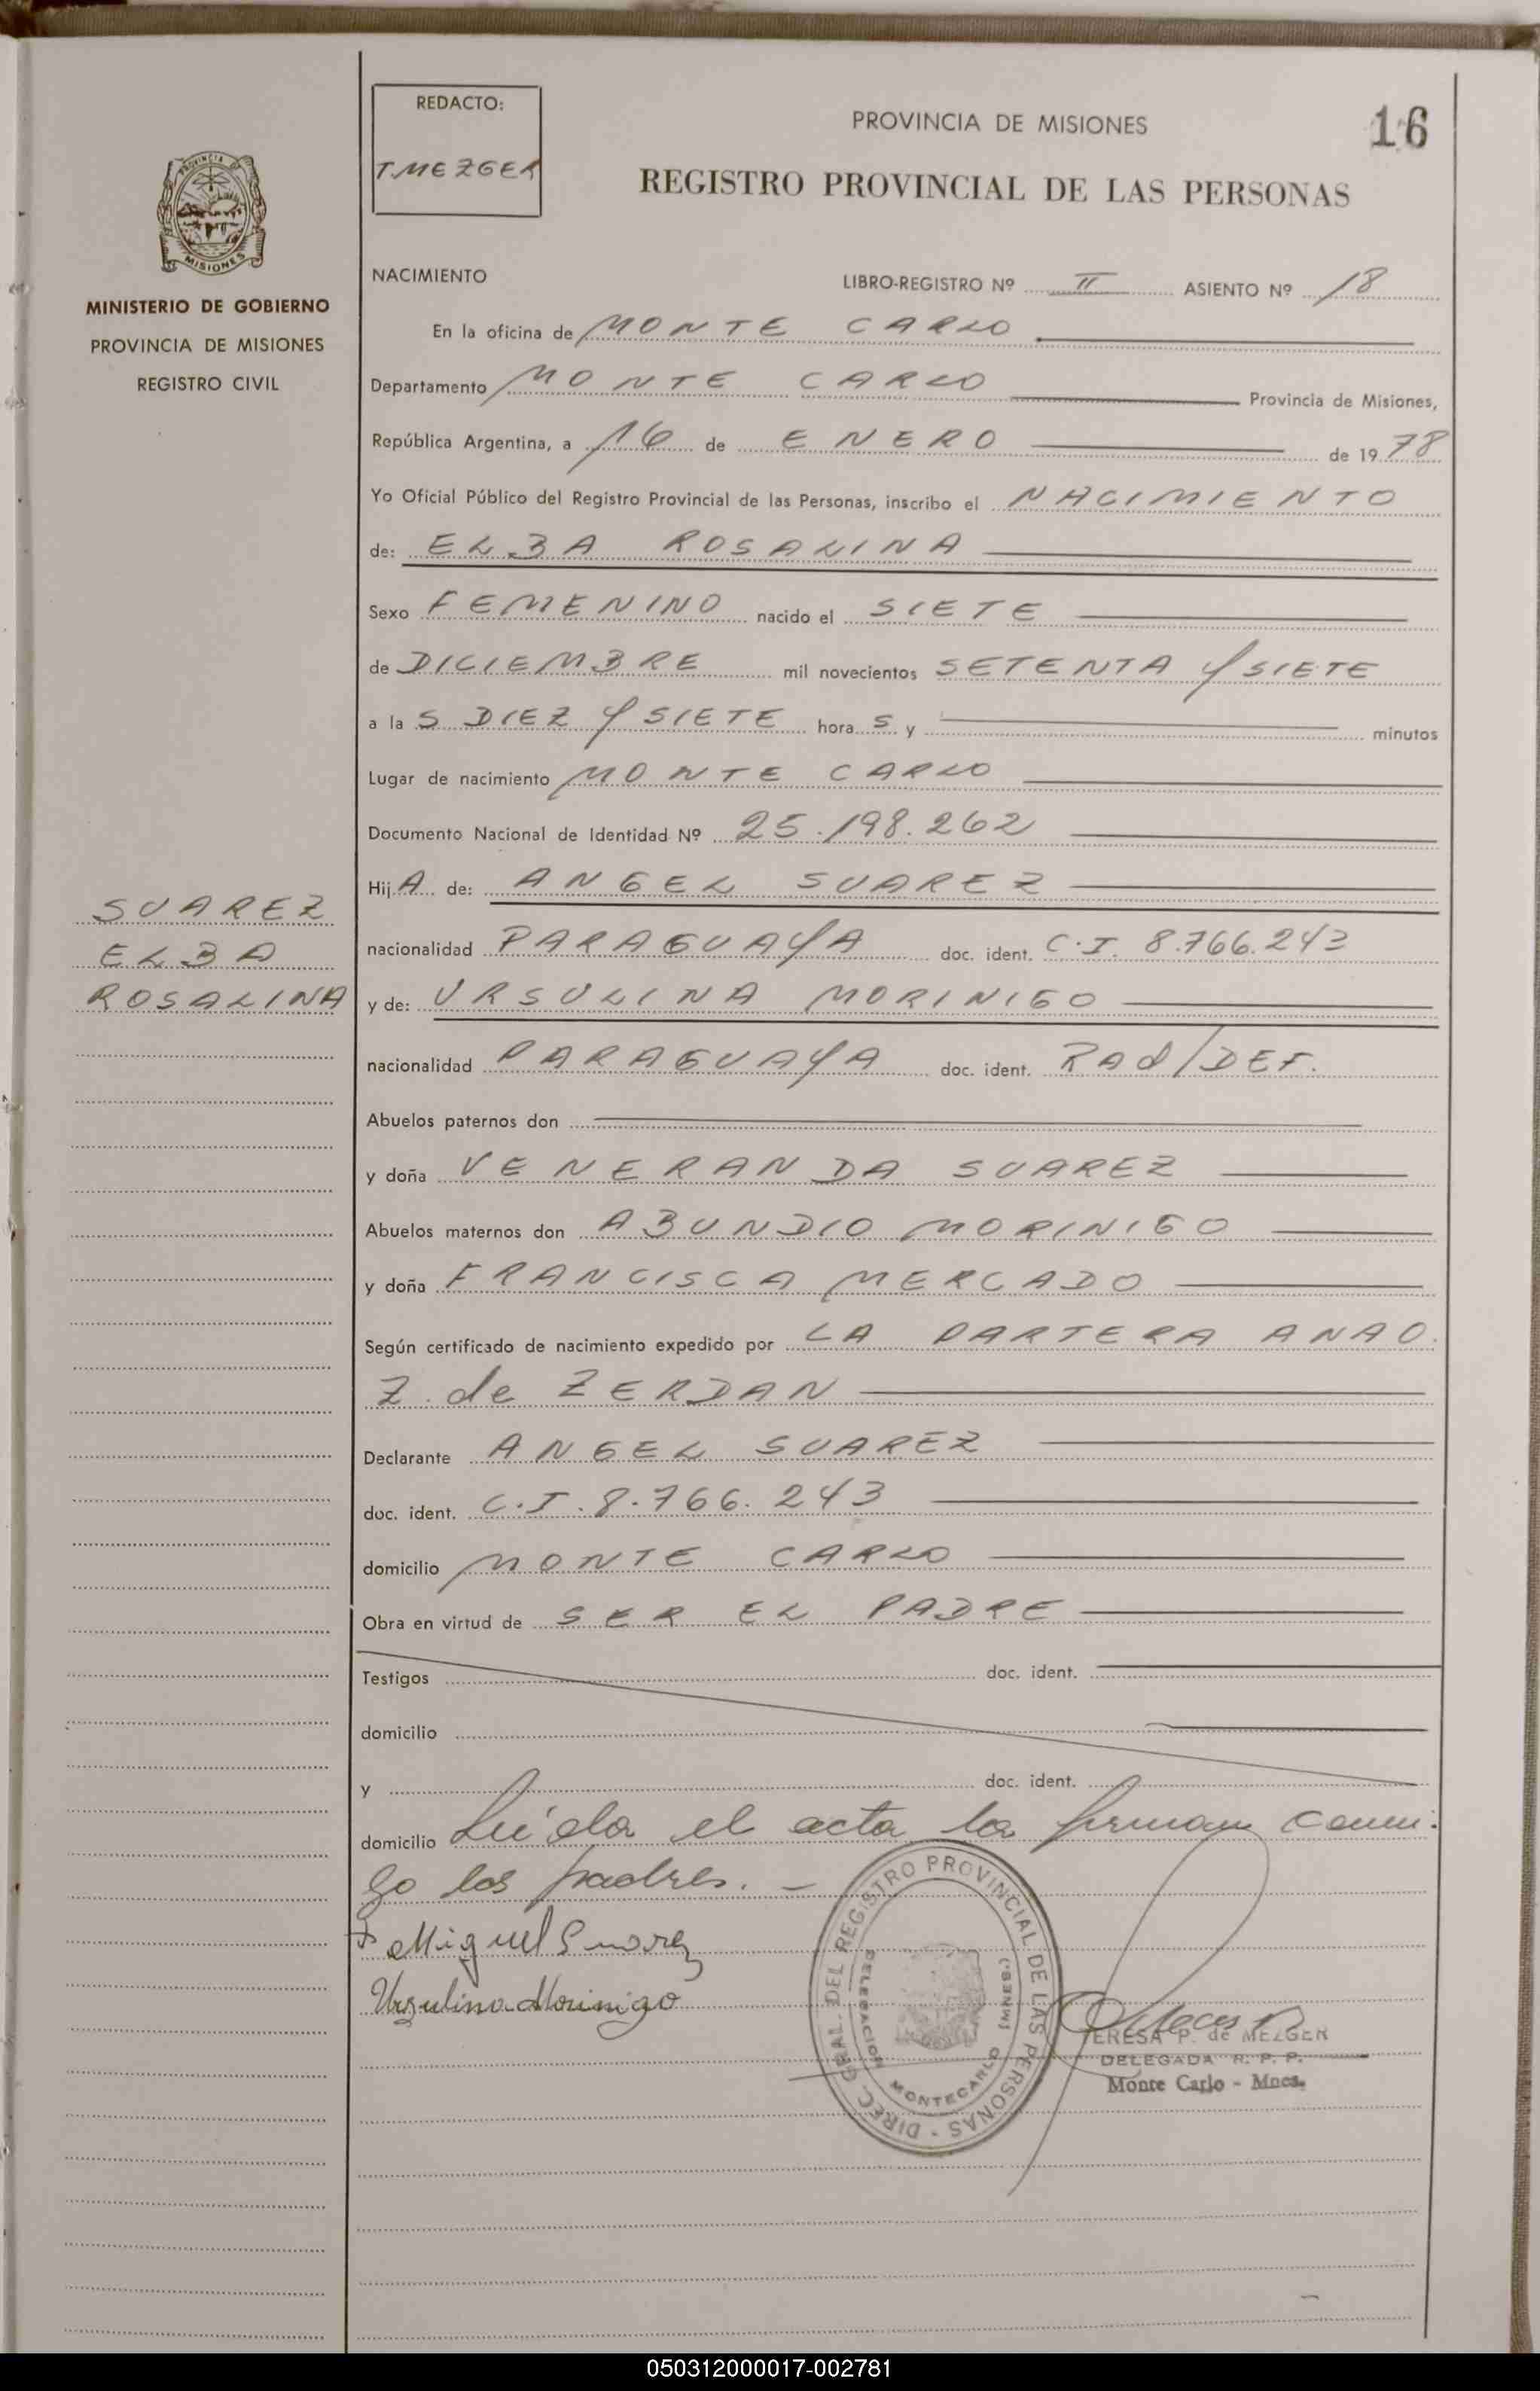 REDACTO:
T. MEZGER
PROVINCIA DE MISIONES
16
REGISTRO PROVINCIAL DE LAS PERSONAS
PROVINCIA DE
MISIONES
MINISTERIO DE GOBIERNO
PROVINCIA DE MISIONES
REGISTRO CIVIL
NACIMIENTO
LIBRO-REGISTRO Nº II ASIENTO Nº 18
En la oficina de MONTE CARLO
Departamento MONTE CARLO Provincia de Misiones,
República Argentina, a 16 de ENERO de 1978
Yo Oficial Público del Registro Provincial de las Personas, inscribo el NACIMIENTO
de: ELBA ROSALINA
Sexo FEMENINO nacido el SIETE
de DICIEMBRE mil novecientos SETENTA Y SIETE
a la S DIEZ Y SIETE hora S y minutos
Lugar de nacimiento MONTE CARLO
Documento Nacional de Identidad Nº 25.198.262
Hij A de: ANGEL SUAREZ
SUAREZ
ELBA
ROSALINA
nacionalidad PARAGUAYA doc. ident. C.I. 8.766.243
y de: URSULINA MORINIGO
nacionalidad PARAGUAYA doc. ident. RAD/DEF.
Abuelos paternos don
y doña VENERANDA SUAREZ
Abuelos maternos don ABUNDIO MORINIGO
y doña FRANCISCA MERCADO
Según certificado de nacimiento expedido por LA PARTERA ANA O.
Z. de ZERDAN
Declarante ANGEL SUAREZ
doc. ident. C.I. 8.766.243
domicilio MONTE CARLO
Obra en virtud de SER EL PADRE
Testigos doc. ident.
domicilio
y doc. ident.
domicilio Leída el acta la firman conmi-
go los padres. -
Miguel Suarez
Ursulina Morinigo
DIREC. GRAL. DEL REGISTRO PROVINCIAL DE LAS PERSONAS -
DELEGACION MONTECARLO (MNES.)
TERESA P. de MEZGER
DELEGADA R. P. P.
Monte Carlo - Mnes.
050312000017-002781